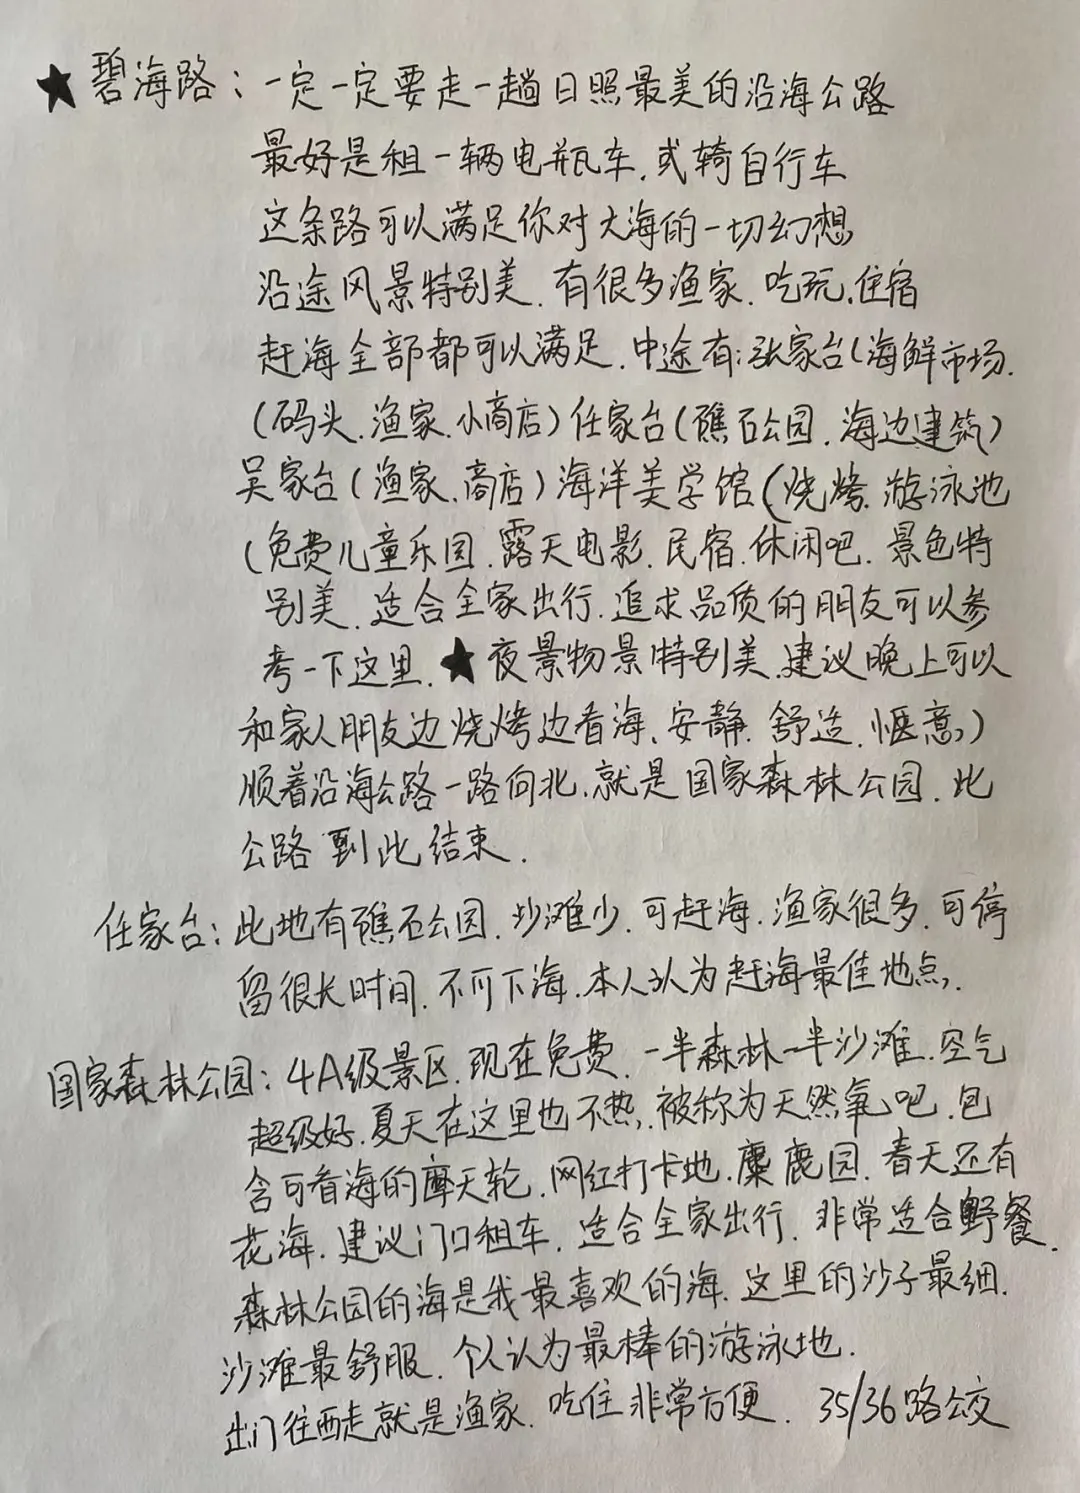 ★碧海路：一定一定要走一趟日照最美的沿海公路
最好是租一辆电瓶车.或骑自行车
这条路可以满足你对大海的一切幻想
沿途风景特别美.有很多渔家.吃玩.住宿
赶海全部都可以满足.中途有:张家台(海鲜市场.
(码头.渔家.小商店)任家台(礁石公园.海边建筑)
吴家台(渔家.商店)海洋美学馆(烧烤.游泳池
(免费儿童乐园.露天电影.民宿.休闲吧.景色特
别美.适合全家出行.追求品质的朋友可以参
考一下这里.★夜景物景特别美.建议晚上可以
和家人朋友边烧烤边看海、安静.舒适.惬意,)
顺着沿海公路一路向北.就是国家森林公园.此
公路到此结束.
任家台:此地有礁石公园.沙滩少.可赶海.渔家很多.可停
留很长时间.不可下海.本人认为赶海最佳地点,
国家森林公园:4A级景区.现在免费.一半森林一半沙滩.空气
超级好.夏天在这里也不热,被称为天然氧吧.包
含可看海的摩天轮.网红打卡地.麋鹿园.春天还有
花海.建议门口租车.适合全家出行.非常适合野餐.
森林公园的海是我最喜欢的海.这里的沙子最细.
沙滩最舒服.个人认为最棒的游泳地.
出门往西走就是渔家.吃住非常方便.35/36路公交